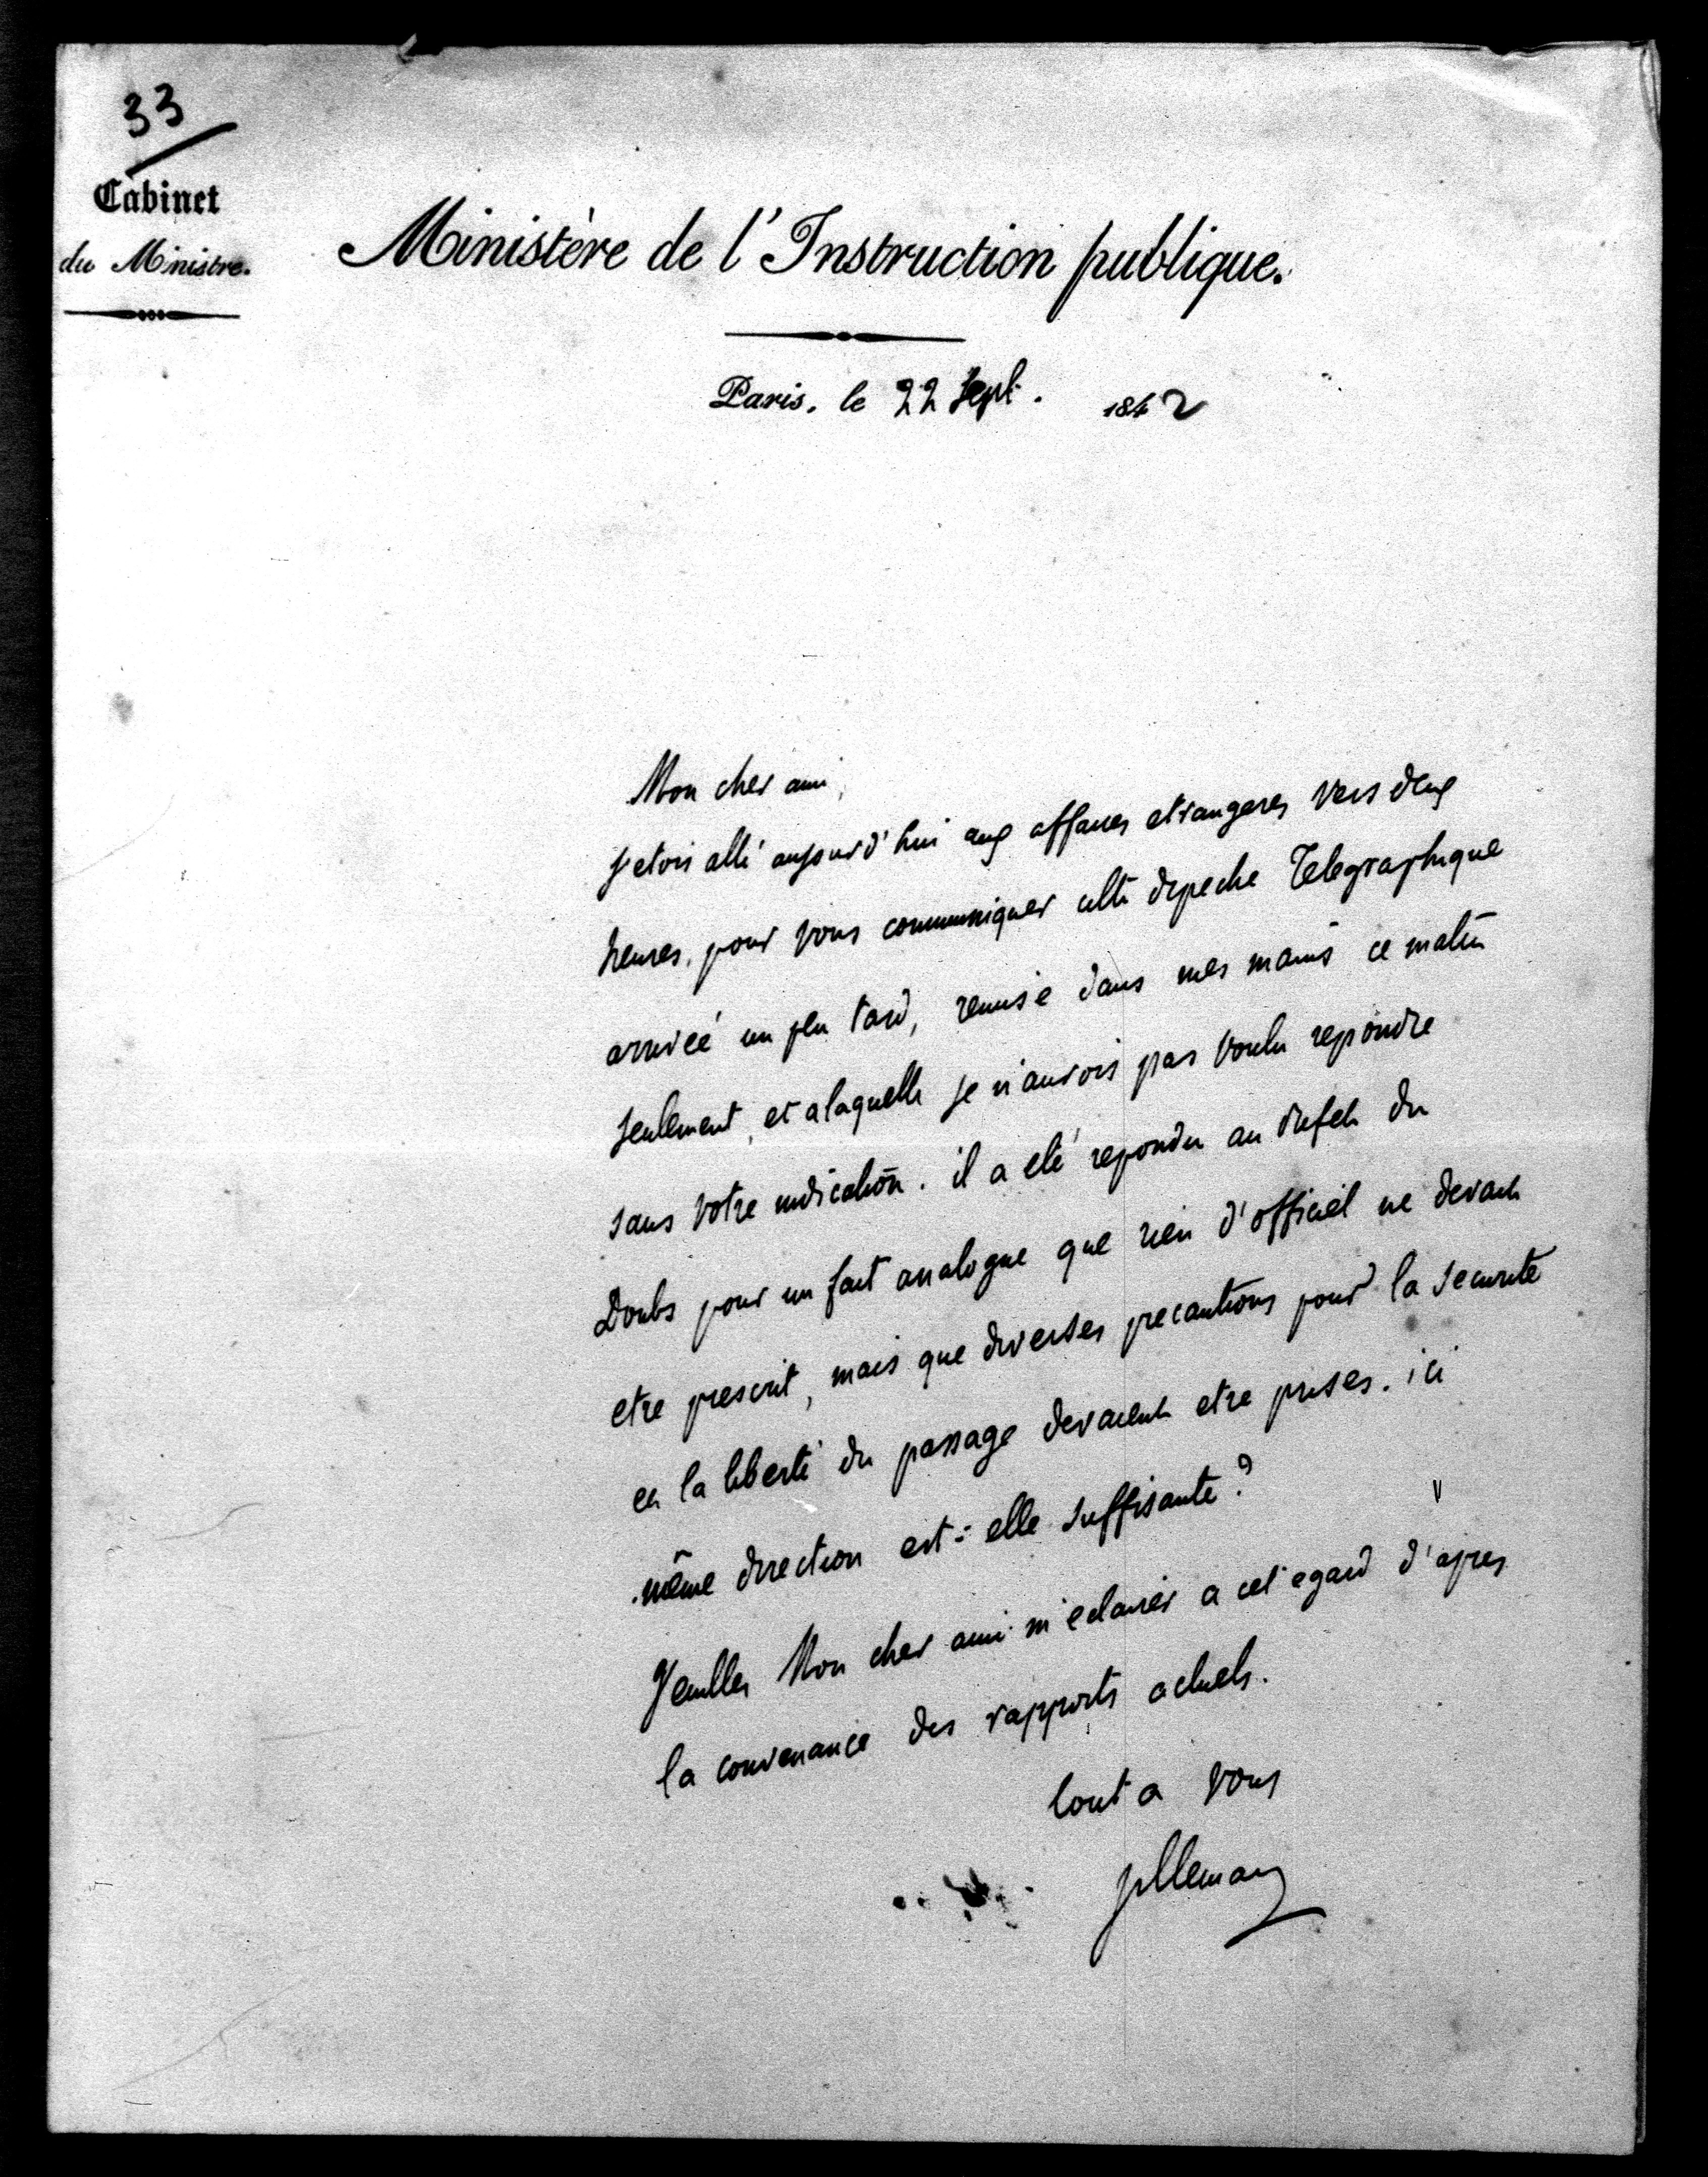 33
Cabinet
du Ministre.
Ministère de l'Instruction publique.
Paris, le 22 Sept. 1842
Mon cher ami,
j'etois allé aujourd'hui aux affaires etrangeres vers deux
heures, pour vous communiquer cette depeche Telegraphique
arrivée un peu tard, remise dans mes mains ce matin
seulement, et a laquelle je n'aurois pas voulu repondre
sans votre indication. il a eté repondu au Prefet du
Doubs pour un fait analogue que rien d'officiel ne devait
etre prescrit, mais que diverses precautions pour la securité
et la liberté du passage devaient etre prises. ici
même direction est-elle suffisante?
Veuillez Mon cher ami m'eclairer a cet egard d'apres
la convenance des rapports actuels.
tout a vous
Villemain